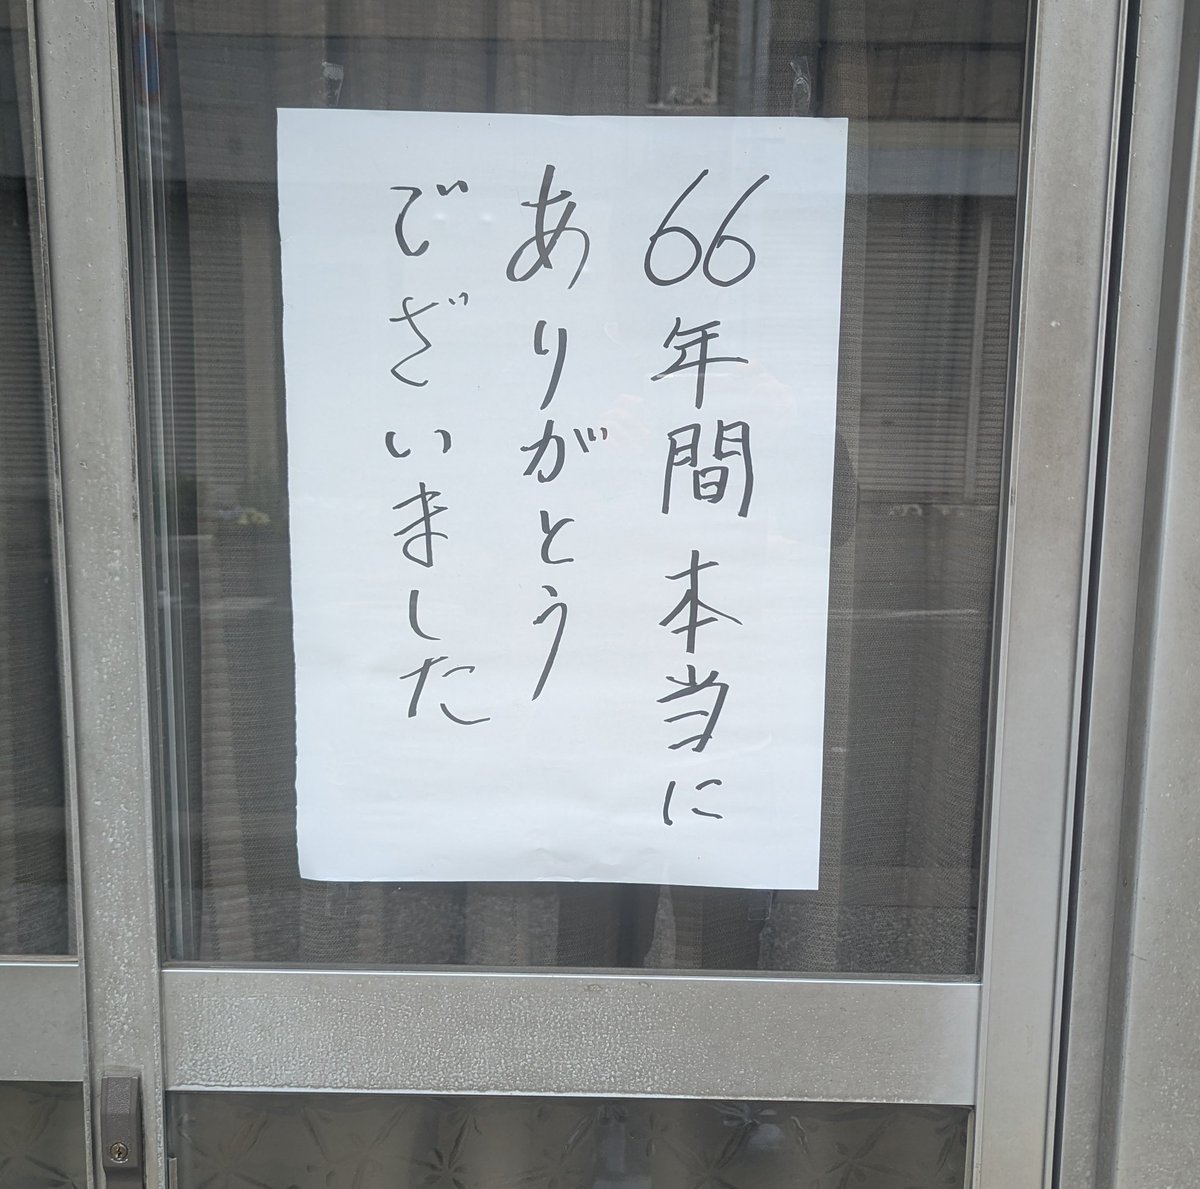 66年間本当に
ありがとう
ございました